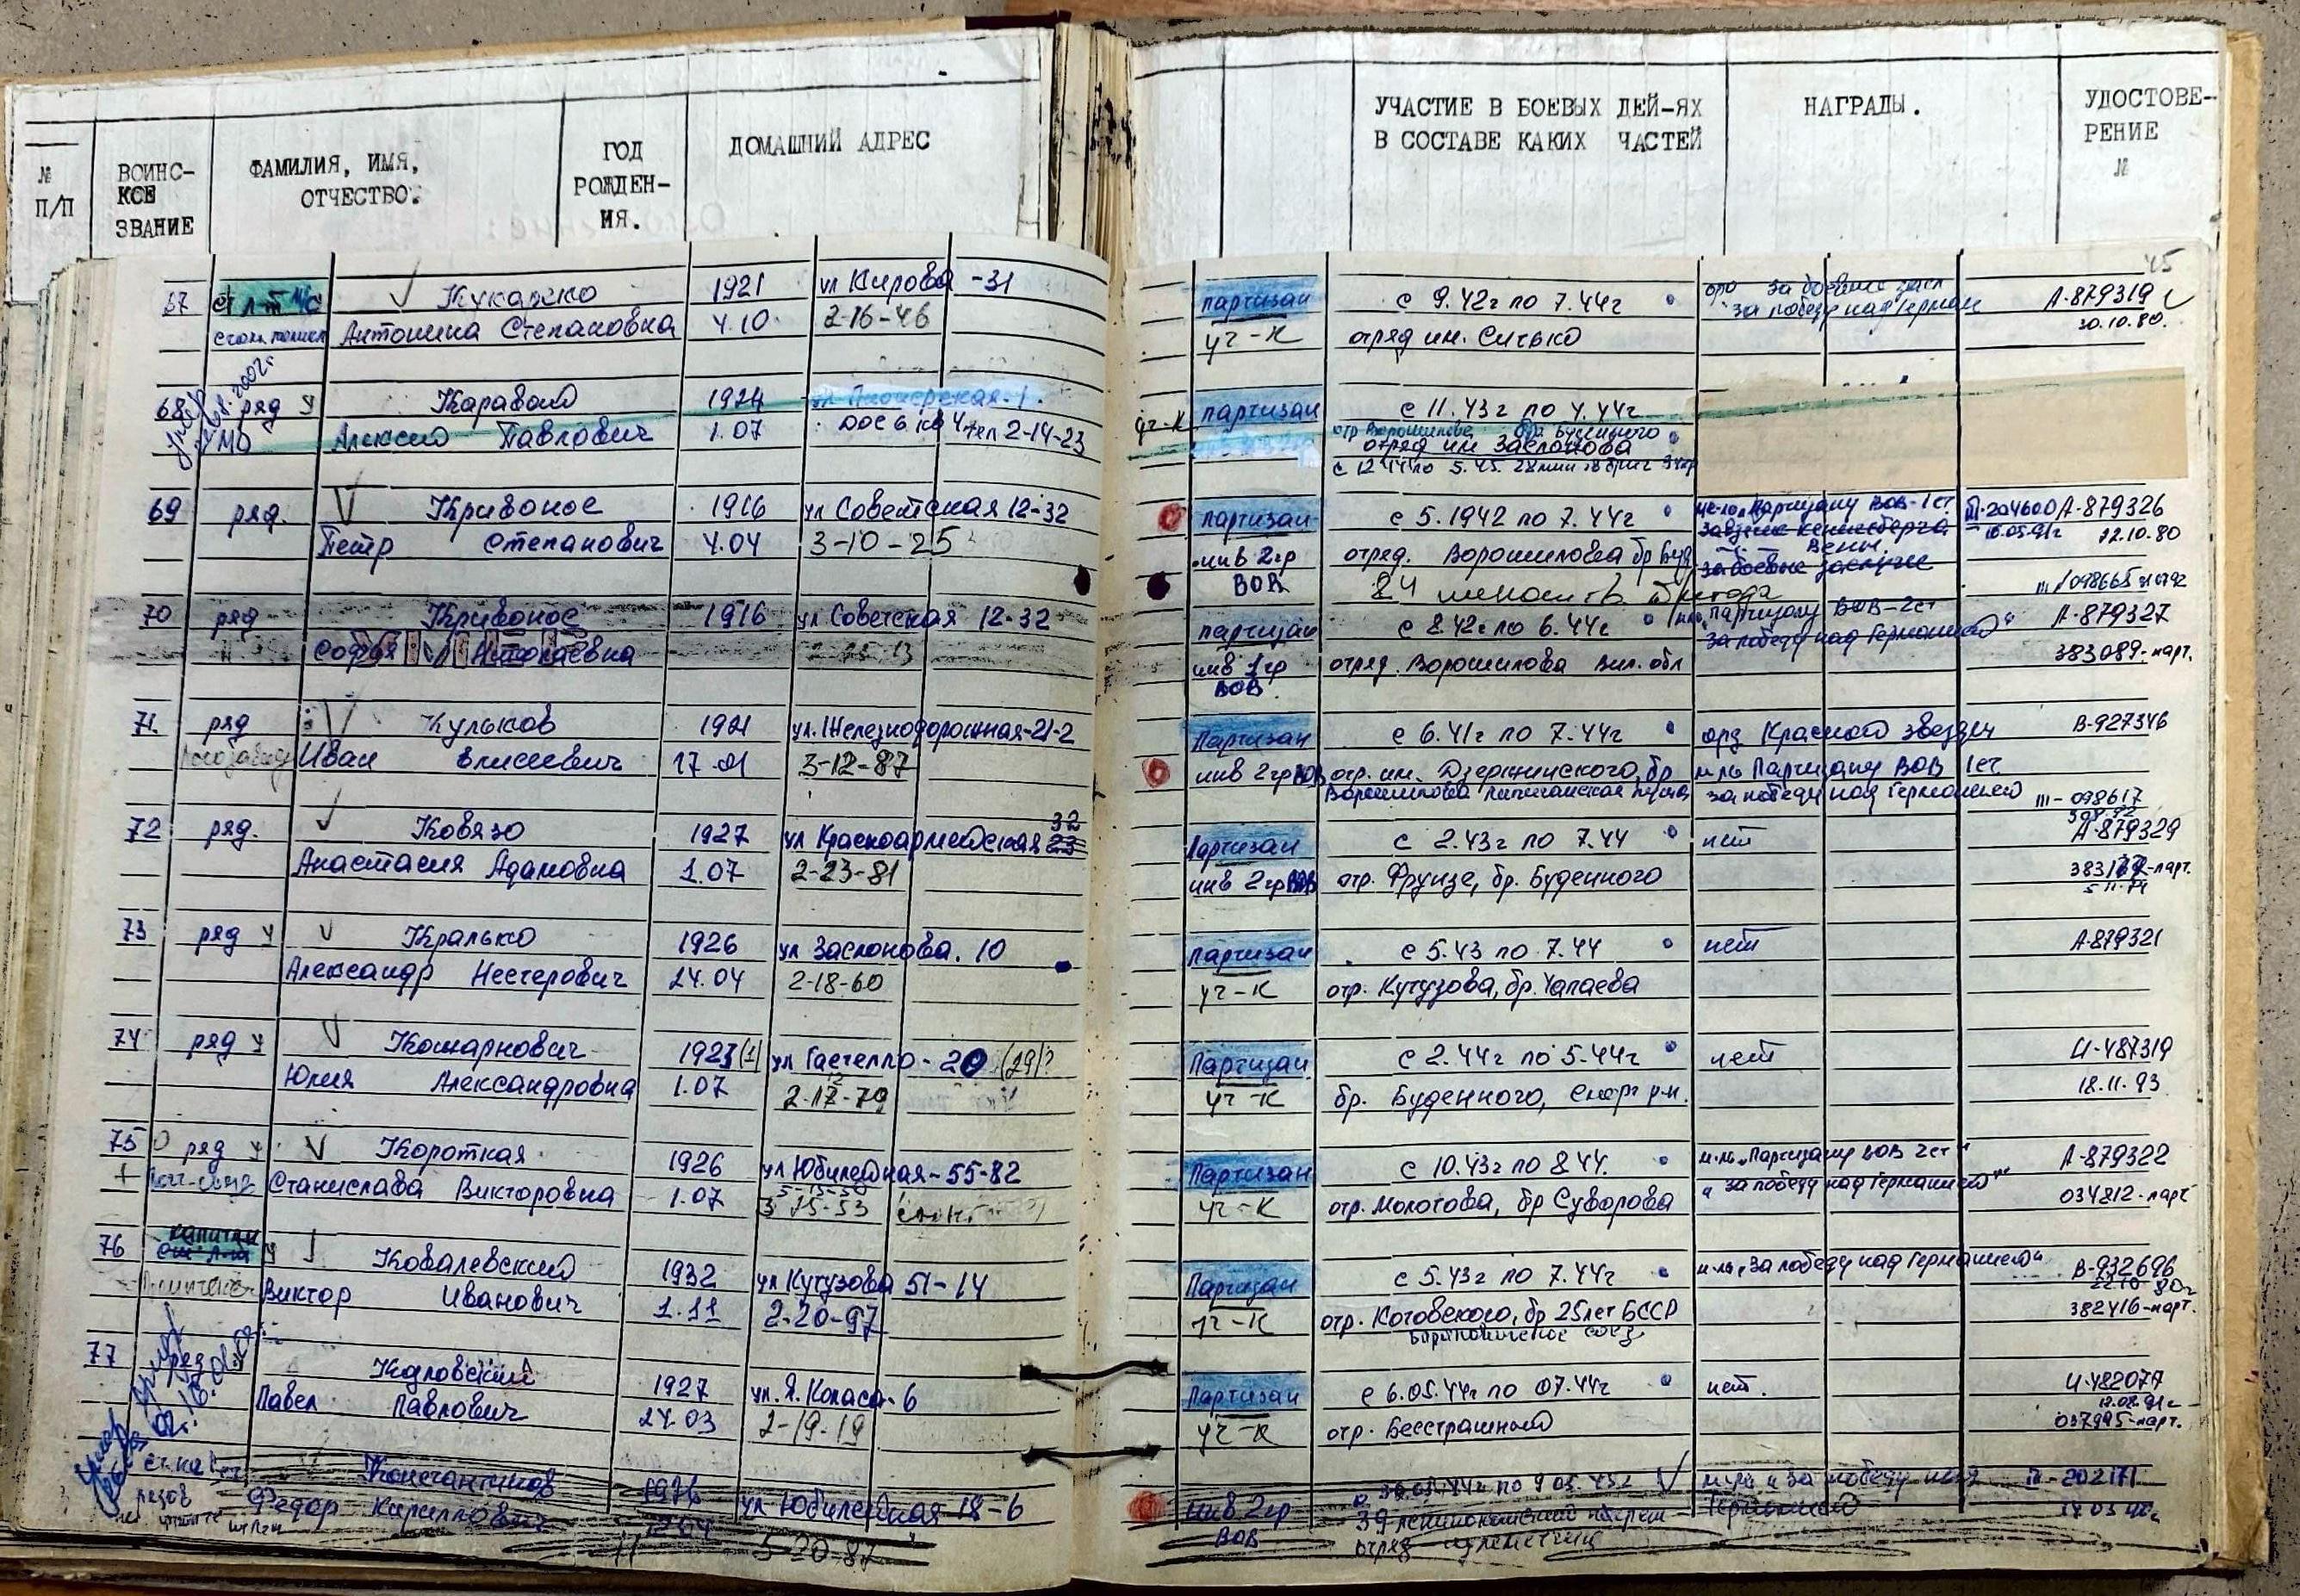 № П/П
ВОИНС-КОЕ ЗВАНИЕ
ФАМИЛИЯ, ИМЯ, ОТЧЕСТВО.
ГОД РОЖДЕН-ИЯ.
ДОМАШНИЙ АДРЕС
УЧАСТИЕ В БОЕВЫХ ДЕЙ-ЯХ
В СОСТАВЕ КАКИХ ЧАСТЕЙ
НАГРАДЫ.
УДОСТОВЕ-РЕНИЕ №
45
67 ст л-т м/с Кукарско 1921 ул Кирова -31 партизан с 9.42г по 7.44г за боевые засл А-879319
Антонина Степановна 4.10 2-16-46 уч-к отряд им. Сичько "за победу над Герман 30.10.80.
68 ряд Каравай 1924 ул Пионерская-1. партизан с 11.43г по 4.44г
МО Алексей Павлович 1.07 ДОС 6 кв 4 тел 2-14-23 уч-к отр Ворошилова бр Буденного
отряд им Заслонова
69 ряд. Кривонос 1916 ул Советская 12-32 партизан с 5.1942 по 7.44г Партизану ВОВ-1ст III-204600 А-879326
Петр Степанович 4.04 3-10-25 инв 2гр отряд. Ворошилова бр Буд за взятие кенигсберга 12.10.80
Вены.
ВОВ за боевые заслуги
70 ряд Кривонос 1916 ул Советская 12-32 партизан с 8.42г по 6.44г Партизану ВОВ-2ст А-879327
Софья Николаевна инв 1гр отряд. Ворошилова Вил. обл за победу над Германией" 383089-парт.
ВОВ.
71. ряд Кульков 1921 ул. Железнодорожная-21-2 Партизан с 6.41г по 7.44г орд Красной звезды В-927346
Иван Елисеевич 17.01 3-12-87 инв 2гр ВОВ отр. им. Дзержинского, бр м-ль Партизану ВОВ 1ст
Ворошилова липичанская пуща за победу над Германией III-098617
72 ряд. Ковязо 1927 ул Красноармейская 23 32 Партизан с 2.43г по 7.44 нет А-879329
Анастасия Адамовна 1.07 2-23-81 инв 2гр ВОВ отр. Фрунзе, бр. Буденного
73 ряд Кралько 1926 ул Заслонова. 10 партизан с 5.43 по 7.44 нет А-879321
Александр Нестерович 24.04 2-18-60 уч-к отр. Кутузова, бр. Чапаева
74 ряд Кошарнович 1923(1) ул Гастелло - 20 (29)? Партизан с 2.44г по 5-44г нет Ч-487319
Юлия Александровна 1.07 2-17-79 уч-к бр. Буденного, 18.11.93
75 ряд Короткая 1926 ул Юбилейная-55-82 Партизан с 10.43г по 8.44. м-ль „Партизану ВОВ 2ст" А-879322
Станислава Викторовна 1.07 уч-к отр. Молотова, бр Суворова „за победу над Германией" 034812-парт
капитан
76 ст. л-т Ковалевский 1932 ул Кутузова 51-14 Партизан с 5.43г по 7.44г м-ль „За победу над Германией" В-932696
22.10 80г
Виктор Иванович 1.11 2-20-97 уч-к отр. Котовского, бр 25 лет БССР 382416-парт.
77 ряд Кадловский 1927 ул. Я. Коласа-6 Партизан с 6.05.44г по 07.44г нет. Ч-482077
Павел Павлович 24.03 2-19-19 уч-К отр. Бесстрашный 037995-парт.
Константинов
Федор Кириллович ул Юбилейная 18-6 инв 2гр III-202171
ВОВ